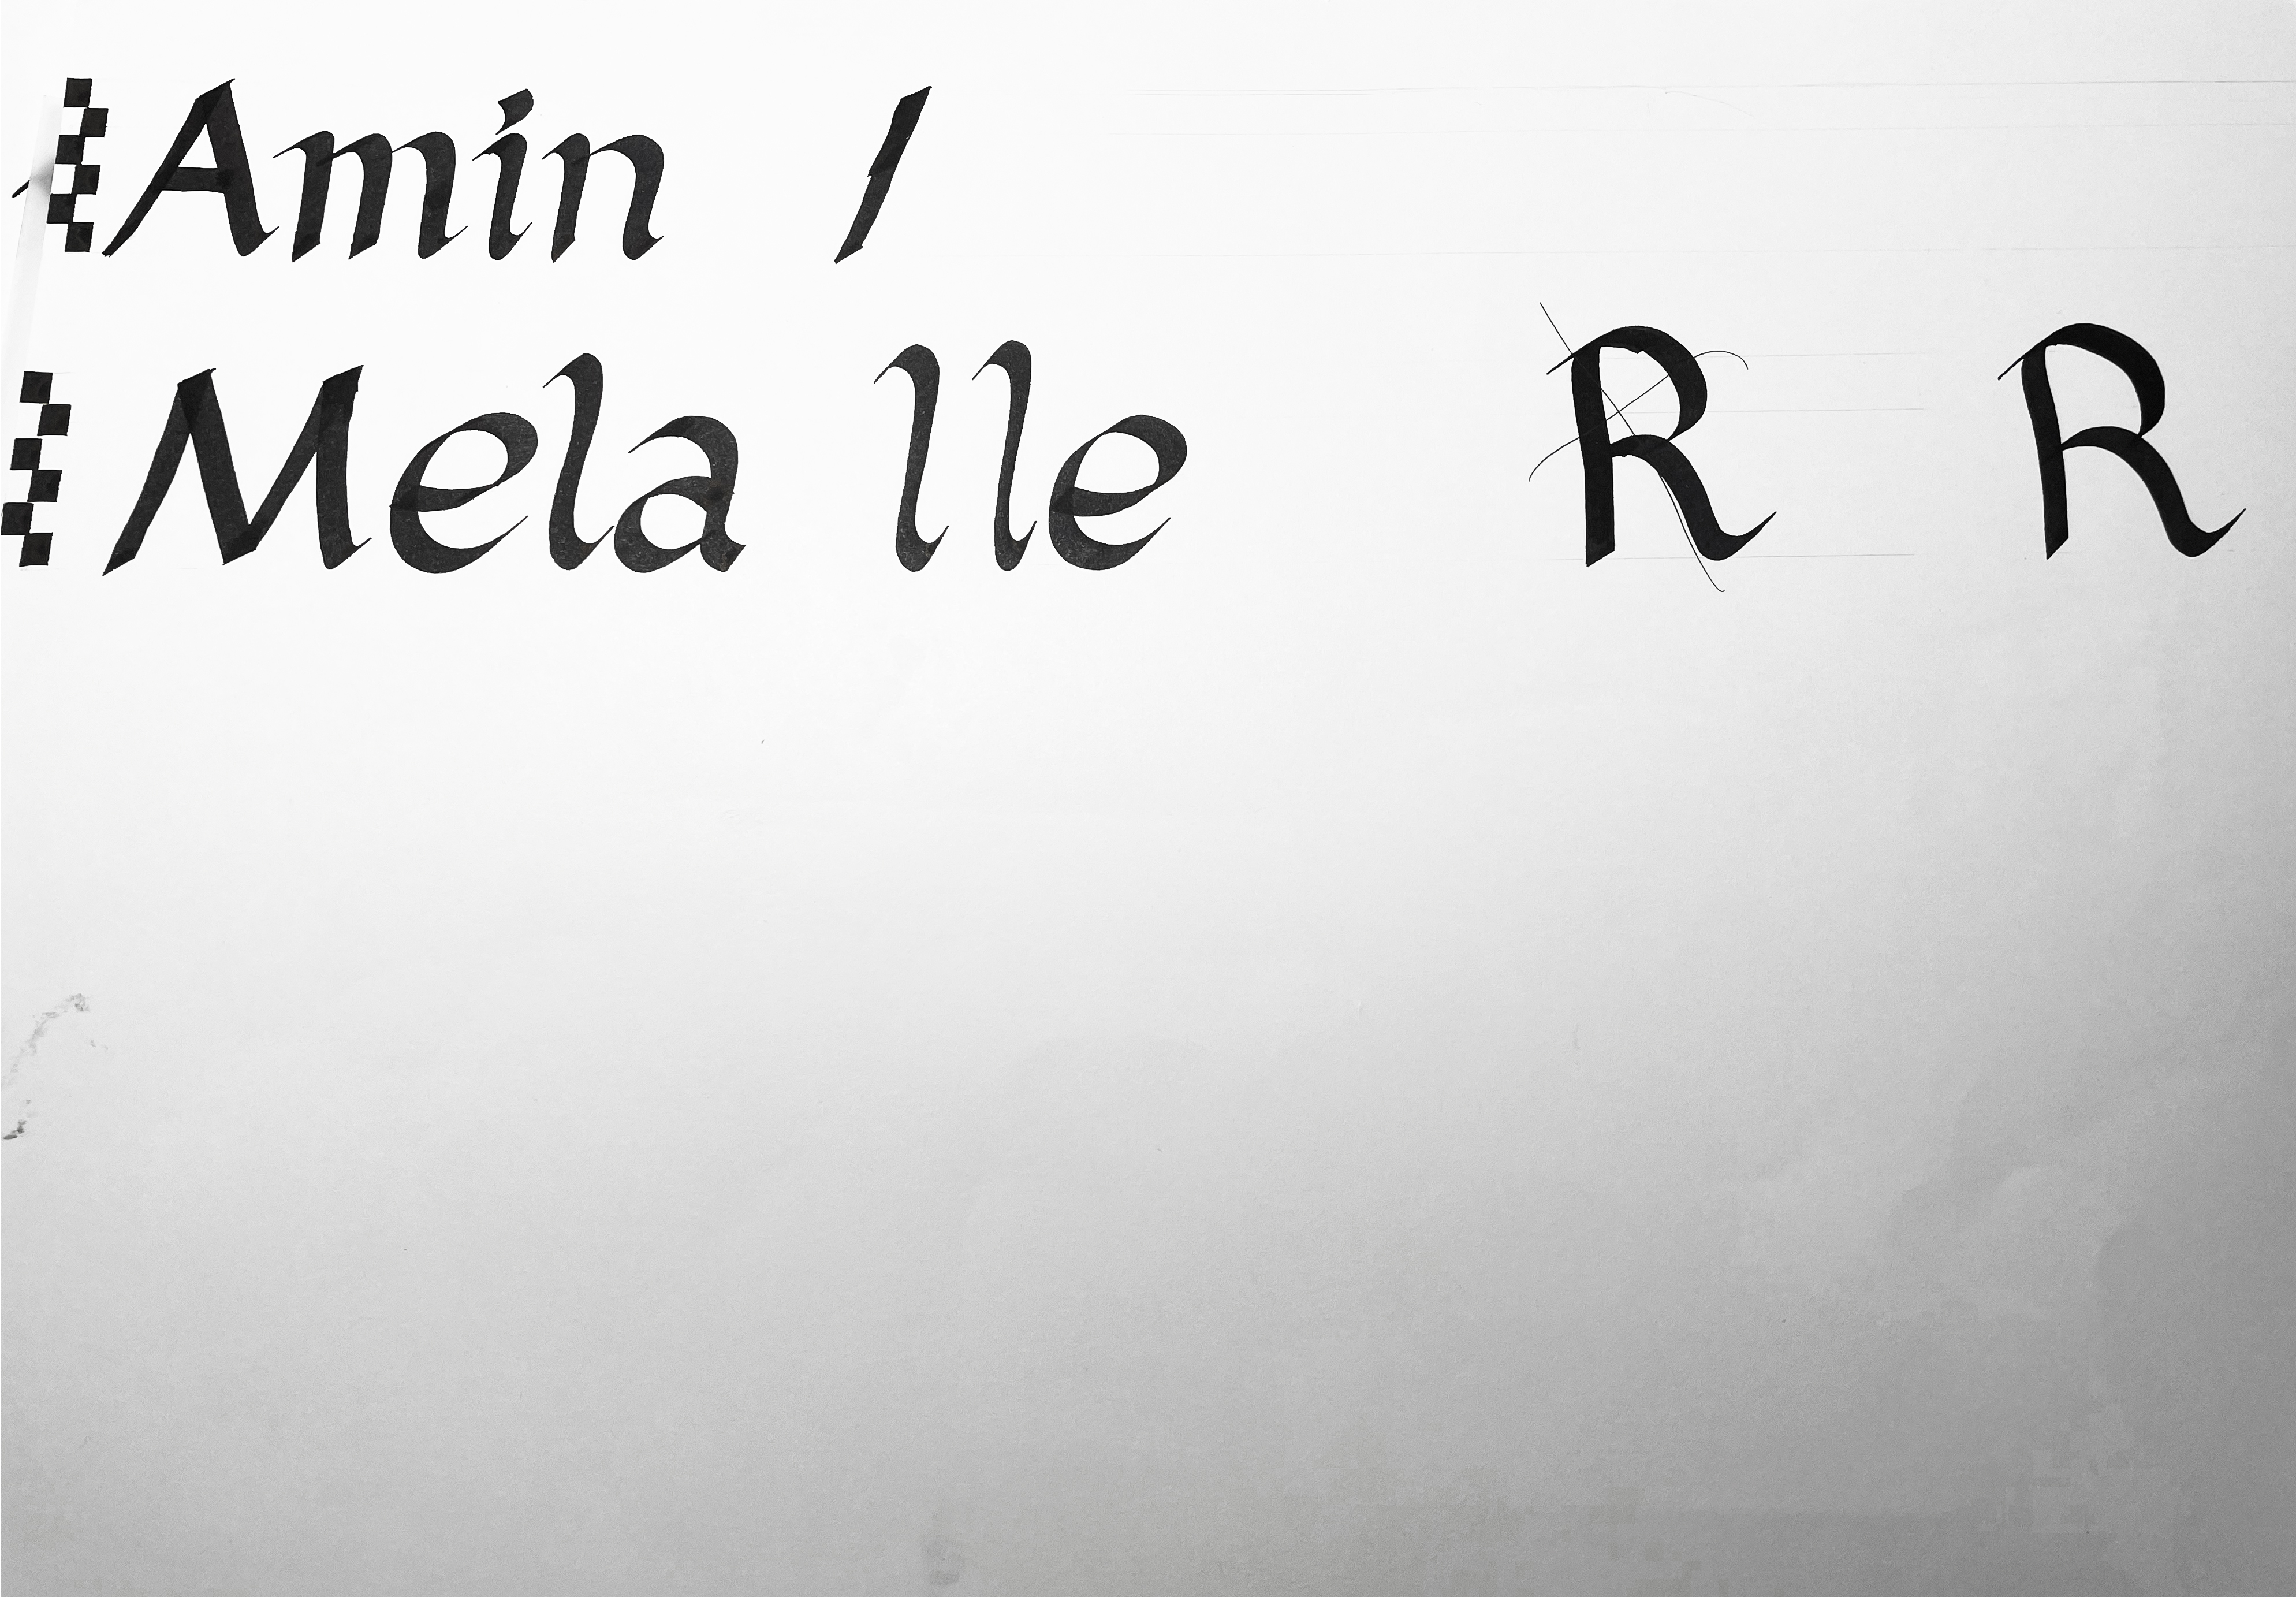 Amin /
Mela lle R R